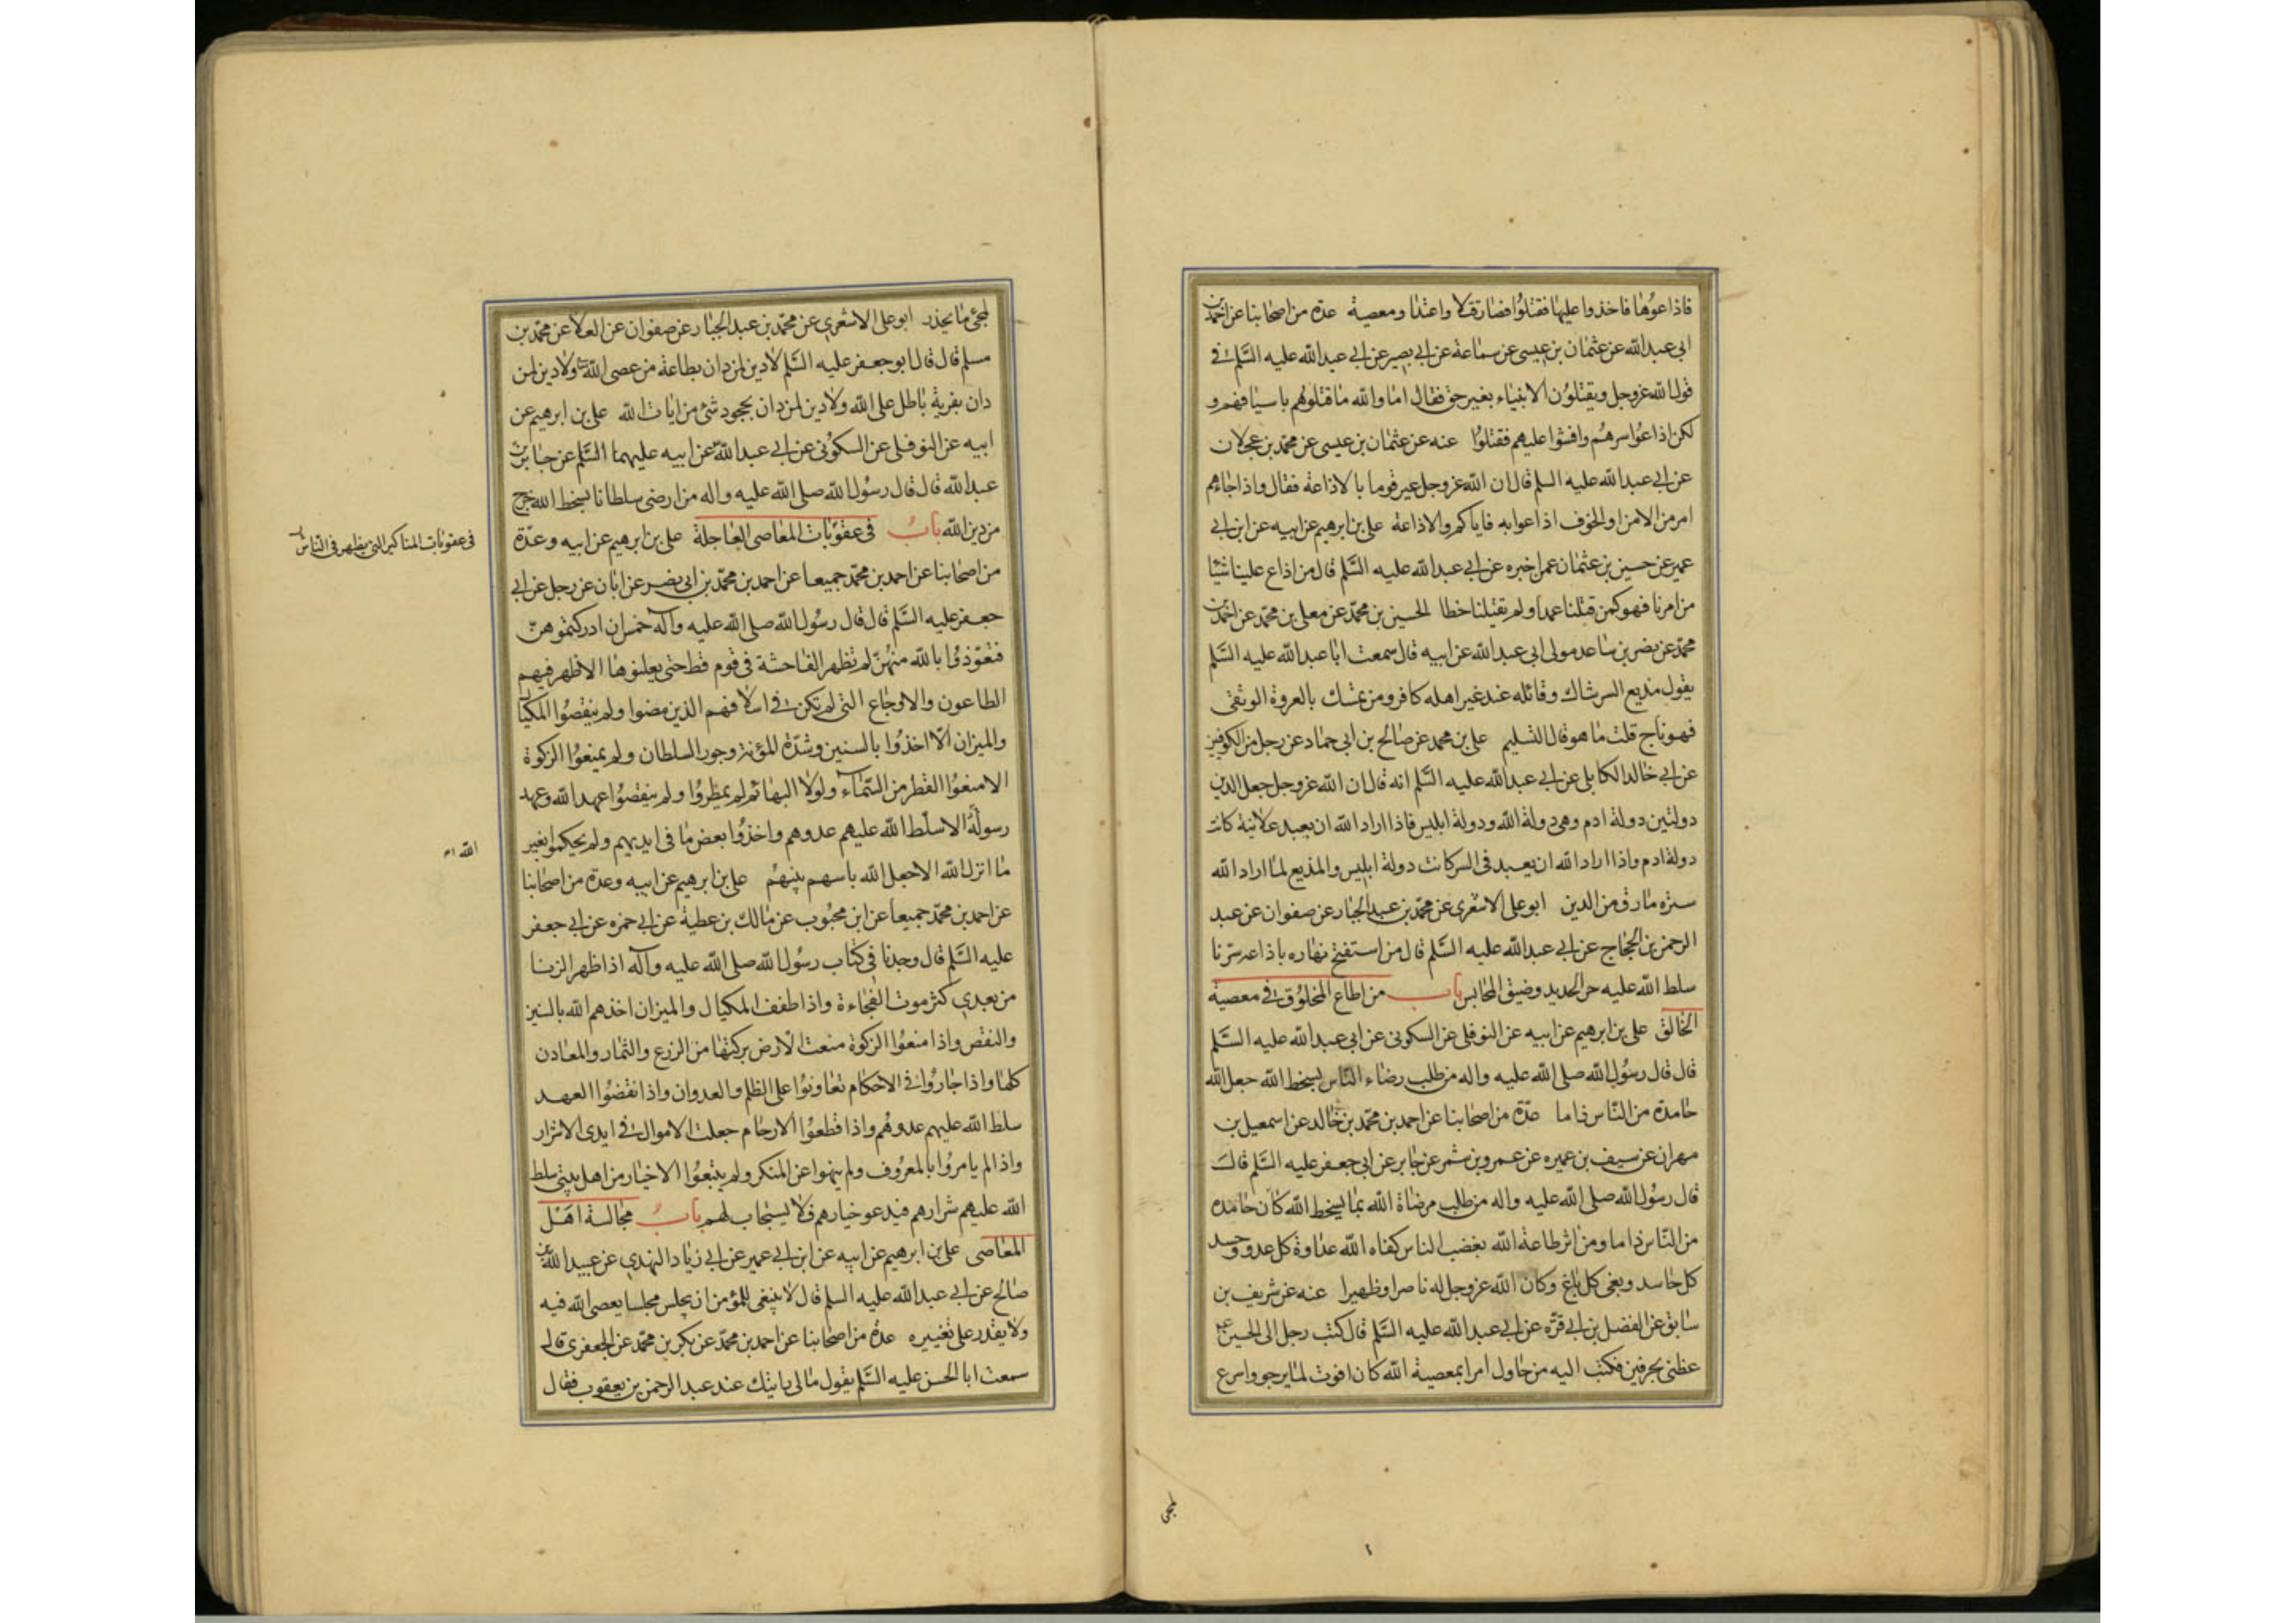 فاذاعوها فاخذوا عليها فقتلوا فصار قتلا واعتدا ومعصية عدة من اصحابنا عن احمد بن
ابى عبد الله عن عثمان بن عيسى عن سماعة عن ابى بصير عن ابى عبد الله عليه السّلم فى
قول الله عزوجل ويقتلون الانبياء بغير حق فقال اما والله ما قتلوهم باسيافهم و
لكن اذاعوا سرهم وافشوا عليهم فقتلوا عنه عن عثمان بن عيسى عن محمد بن عجلان
عن ابى عبد الله عليه السلم قال ان الله عزوجل عير قوما بالاذاعة فقال واذا جاءهم
امر من الامن او الخوف اذاعوا به فاياكم والاذاعة على بن ابرهيم عن ابيه عن ابن ابى
عمير عن حسين بن عثمان عمن اخبره عن ابى عبد الله عليه السّلم قال من اذاع علينا شيئا
من امرنا فهو كمن قتلنا عمدا ولم يقتلنا خطا الحسين بن محمد عن معلى بن محمد عن احمد بن
محمد عن نصر بن صاعد مولى ابى عبد الله عن ابيه قال سمعت ابا عبد الله عليه السّلم
يقول مذيع السر شاك وقائله عند غير اهله كافر ومن تمسك بالعروة الوثقى
فهو ناج قلت ما هو قال التسليم على بن محمد عن صالح بن ابى حماد عن رجل من الكوفيين
عن ابى خالد الكابلى عن ابى عبد الله عليه السّلم انه قال ان الله عزوجل جعل الدين
دولتين دولة ادم وهى دولة الله ودولة ابليس فاذا اراد الله ان يعبد علانية كانت
دولة ادم واذا اراد الله ان يعبد فى السر كانت دولة ابليس والمذيع لما اراد الله
ستره مارق من الدين ابو على الاشعرى عن محمد بن عبد الجبار عن صفوان عن عبد
الرحمن بن الحجاج عن ابى عبد الله عليه السّلم قال من استفتح نهاره باذاعة سرّنا
سلط الله عليه حر الحديد وضيق المحابس باب من اطاع المخلوق فى معصية
الخالق على بن ابرهيم عن ابيه عن النوفلى عن السكونى عن ابى عبد الله عليه السّلم
قال قال رسول الله صلى الله عليه واله من طلب رضاء النّاس بسخط الله جعل الله
حامده من النّاس ذاما عدّة من اصحابنا عن احمد بن محمّد بن خالد عن اسمعيل بن
مهران عن سيف بن عميره عن عمرو بن شمر عن جابر عن ابى جعفر عليه السّلم قال
قال رسول الله صلى الله عليه واله من طلب مرضاة الله بما يسخط الله كان حامده
من النّاس ذاما ومن اثر طاعة الله بغضب الناس كفاه الله عداوة كل عدو وحسد
كل حاسد وبغى كل باغ وكان الله عزوجل له ناصرا وظهيرا عنه عن شريف بن
سابق عن الفضل بن ابى قرّه عن ابى عبد الله عليه السّلم قال كتب رجل الى الحسين ع
عظنى بحرفين فكتب اليه من حاول امرا بمعصية الله كان افوت لما يرجو واسرع
لمجئ
لمجئ ما يحذر ابو على الاشعرى عن محمّد بن عبد الجبار عن صفوان عن العلا عن محمد بن
مسلم قال قال ابو جعفر عليه السّلم لا دين لمن دان بطاعة من عصى الله ولا دين لمن
دان بفرية باطل على الله ولا دين لمن دان بجحود شئ من ايات الله على بن ابرهيم عن
ابيه عن النوفلى عن السكونى عن ابى عبد الله عن ابيه عليهما السّلم عن جابر بن
عبد الله قال قال رسول الله صلى الله عليه واله من ارضى سلطانا بسخط الله خرج
من دين الله باب فى عقوبات المعاصى العاجلة على بن ابرهيم عن ابيه وعدّة
فى عقوبات المناكير التى يظهر فى الناس
من اصحابنا عن احمد بن محمّد جميعا عن احمد بن محمّد بن ابى نصر عن ابان عن رجل عن ابى
جعفر عليه السّلم قال قال رسول الله صلى الله عليه وآله خمس ان ادركتموهنّ
فتعوّذوا بالله منهنّ لم تظهر الفاحشة فى قوم قط حتى يعلنوها الا ظهر فيهم
الطاعون والاوجاع التى لم تكن فى اسلافهم الذين مضوا ولم ينقصوا المكيال
والميزان الّا اخذوا بالسنين وشدّة المؤنة وجور السلطان ولم يمنعوا الزكوة
الا منعوا القطر من السّماء ولولا البهائم لم يمطروا ولم ينقضوا عهد الله وعهد
رسوله الا سلّط الله عليهم عدوهم واخذوا بعض ما فى ايديهم ولم يحكموا بغير
الله
ما انزل الله الا جعل الله باسهم بينهم على بن ابرهيم عن ابيه وعدة من اصحابنا
عن احمد بن محمّد جميعا عن ابن محبوب عن مالك بن عطية عن ابى حمزه عن ابى جعفر
عليه السّلم قال وجدنا فى كتاب رسول الله صلى الله عليه وآله اذا ظهر الزنا
من بعدى كثر موت الفجاءة واذا طفف المكيال والميزان اخذهم الله بالسنين
والنقص واذا منعوا الزكوة منعت الارض بركتها من الزرع والثمار والمعادن
كلها واذا جاروا فى الاحكام تعاونوا على الظلم والعدوان واذا نقضوا العهد
سلط الله عليهم عدوهم واذا قطعوا الارحام جعلت الاموال فى ايدى الاشرار
واذا لم يامروا بالمعروف ولم ينهوا عن المنكر ولم يتبعوا الاخيار من اهل بيتى سلط
الله عليهم شرارهم فيدعو خيارهم فلا يستجاب لهم باب مجالسة اهل
المعاصى على بن ابرهيم عن ابيه عن ابن ابى عمير عن ابى زياد النهدى عن عبيد الله بن
صالح عن ابى عبد الله عليه السلم قال لا ينبغى للمؤمن ان يجلس مجلسا يعصى الله فيه
ولا يقدر على تغييره عدة من اصحابنا عن احمد بن محمّد عن بكر بن محمّد عن الجعفرى قال
سمعت ابا الحسن عليه السّلم يقول مالى رايتك عند عبد الرحمن بن يعقوب فقال